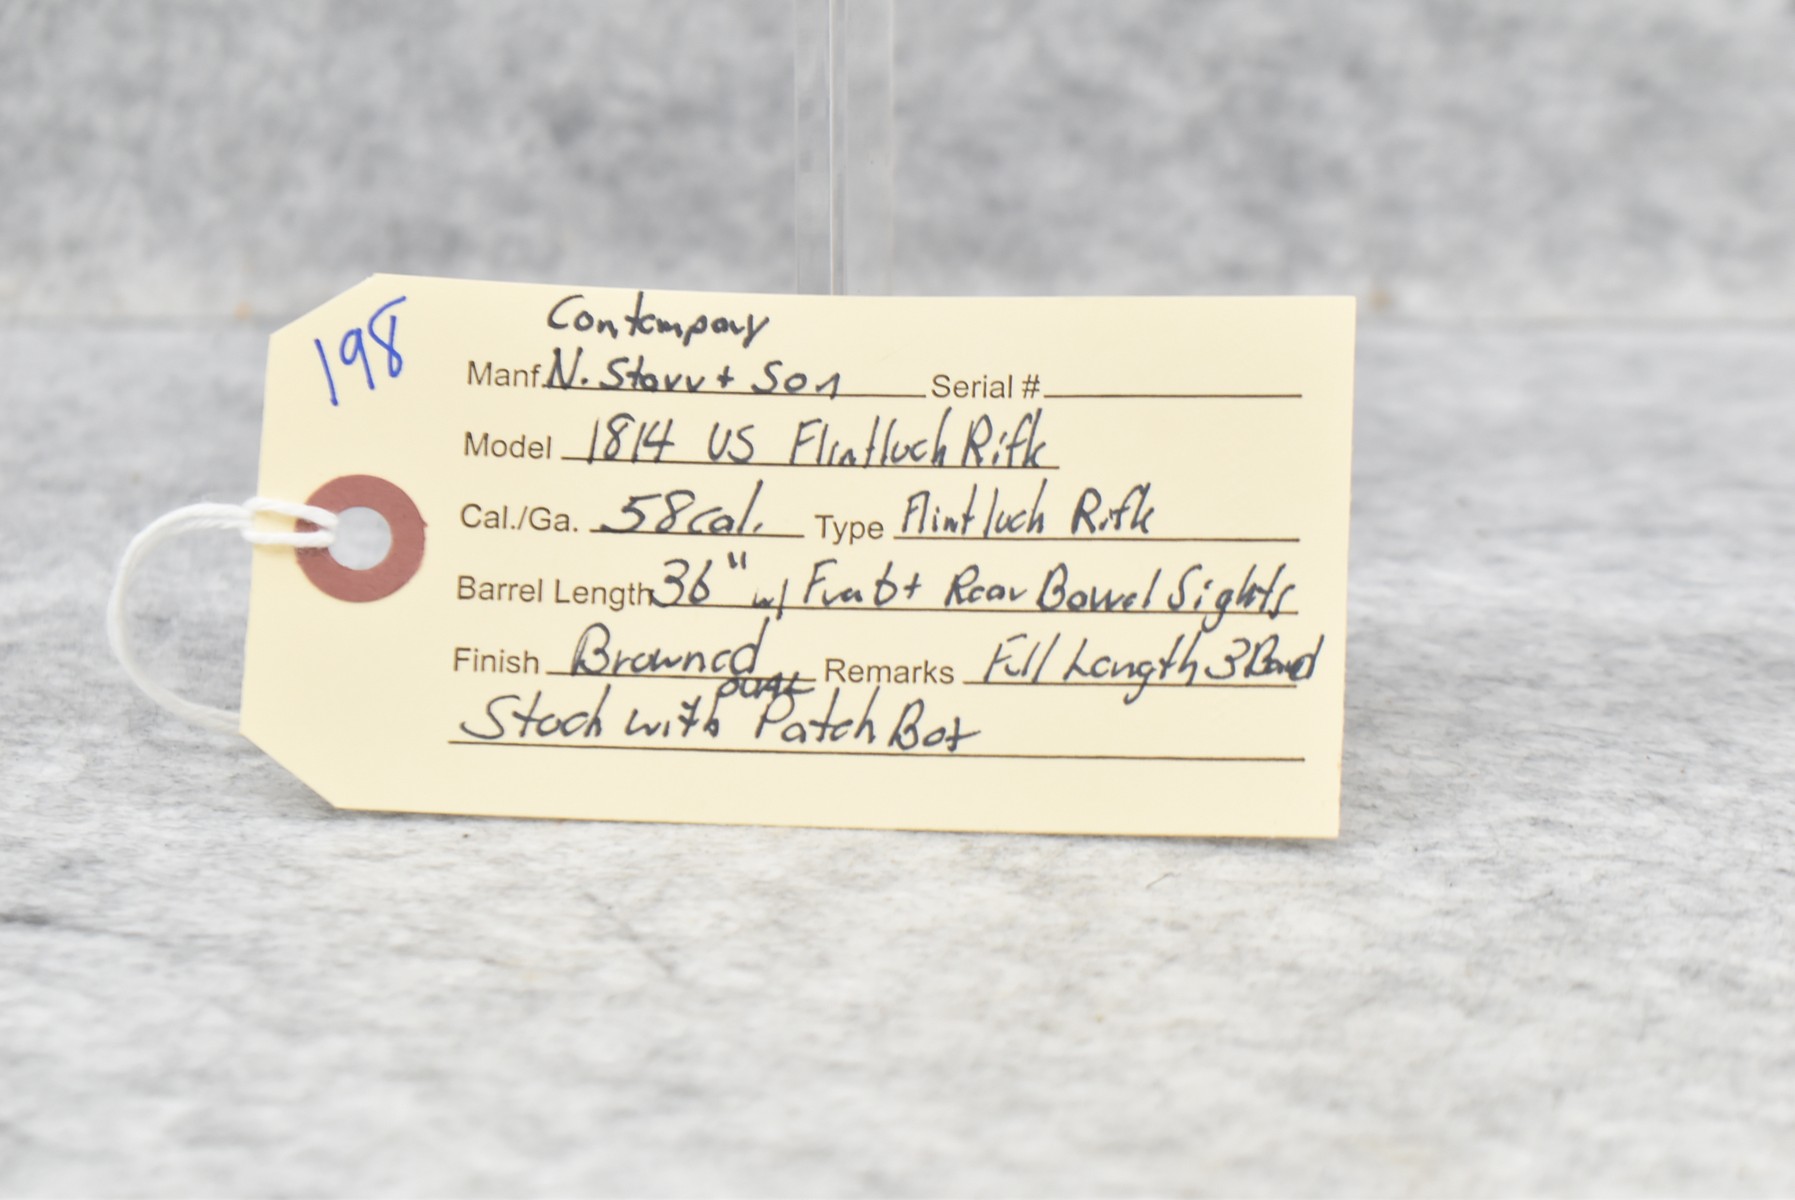 198
Contempory
Manf. N. Starr + Son Serial #
Model 1814 US Flintlock Rifle
Cal./Ga. 58 cal. Type Flintlock Rifle
Barrel Length 36" w/ Front + Rear Bowel Sights
Finish Browned Remarks Full Length 3 Band
Stock with Patch Box